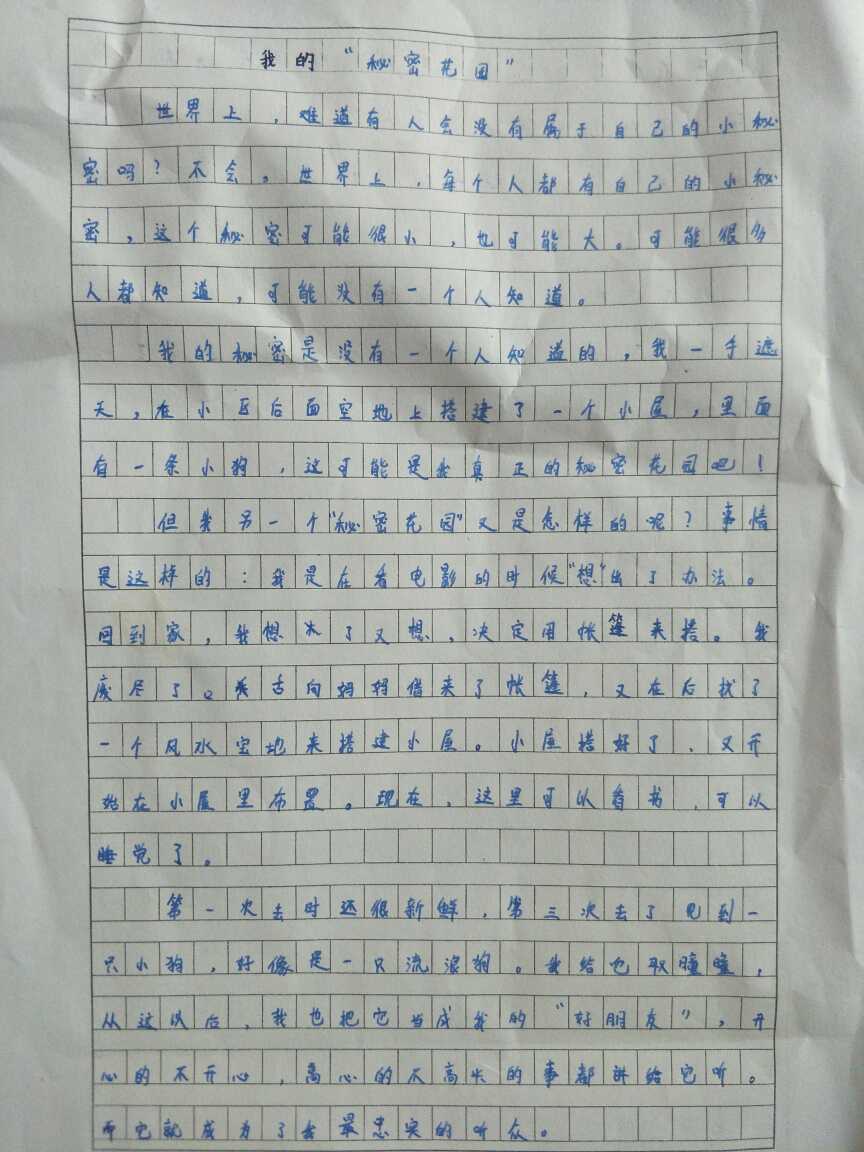 我的“秘密花园”
世界上，难道有人会没有属于自己的小秘
密吗？不会。世界上，每个人都有自己的小秘
密，这个秘密可能很小，也可能大。可能很多
人都知道，可能没有一个人知道。
我的秘密是没有一个人知道的，我一手遮
天，在小区后面空地上搭建了一个小屋，里面
有一条小狗，这可能是我真正的秘密花园吧！
但我另一个“秘密花园”又是怎样的呢？事情
是这样的：我是在看电影的时候“想”出了办法。
回到家，我想了又想，决定用帐篷来搭。我
废尽了口舌向妈妈借来了帐篷，又在后找了
一个风水宝地来搭建小屋。小屋搭好了，又开
始在小屋里布置。现在，这里可以看书，可以
睡觉了。
第一次去时还很新鲜，第三次去了见到一
只小狗，好像是一只流浪狗。我给它取瞳瞳，
从这以后，我也把它当成我的“好朋友”，开
心的不开心，高心的不高兴的事都讲给它听。
而它就成为了我最忠实的听众。